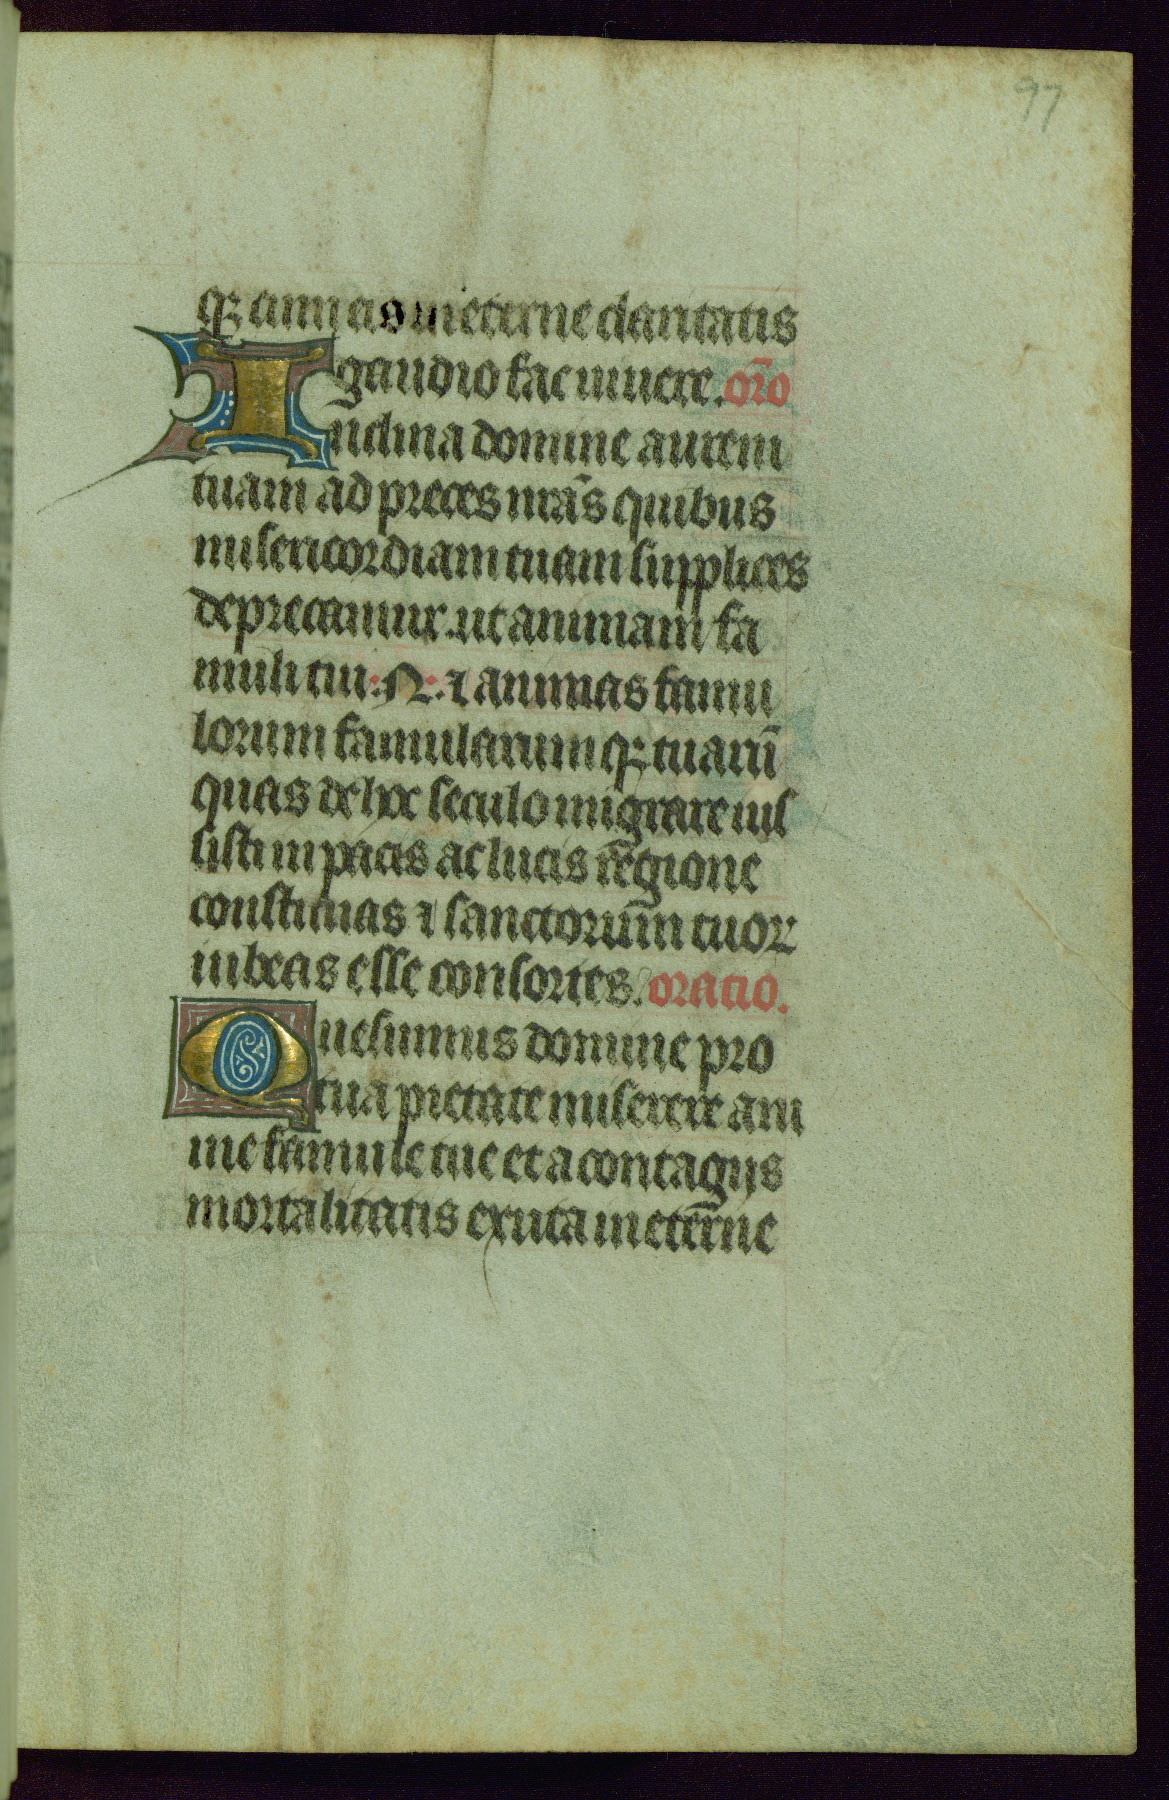 97
qꝫ animas in eterne claritatis
gaudio fac uiuere. or̄o
Inclina domine aurem
tuam ad preces nr̄as quibus
misericordiam tuam supplices
deprecamur. ut animam fa
muli tui .N. ⁊ animas famu
lorum famularum qꝫ tuarū
quas de hoc seculo migrare ius
sisti in pacis ac lucis regione
constituas ⁊ sanctorum tuoꝝ
iubeas esse consortes. oracio.
Quesumus domine pro
tua pietate miserere ani
me famule tue et a contagijs
mortalitatis exuta in eterne